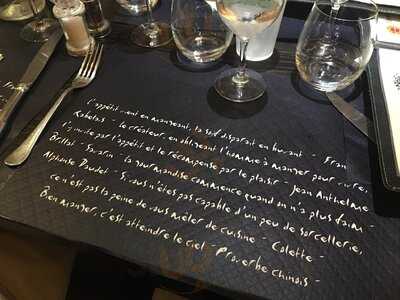 L'appétit vient en mangeant, la soif disparaît en buvant - Fran
Rabelais - Le créateur, en obligeant l'homme à manger pour vivre,
l'y invite par l'appétit et le récompense par le plaisir - Jean Anthelme
Brillat-Savarin - La gourmandise commence quand on n'a plus faim -
Alphonse Daudet - Si vous n'êtes pas capable d'un peu de sorcellerie,
ce n'est pas la peine de vous mêler de cuisine - Colette -
Bien manger, c'est atteindre le ciel - Proverbe chinois -